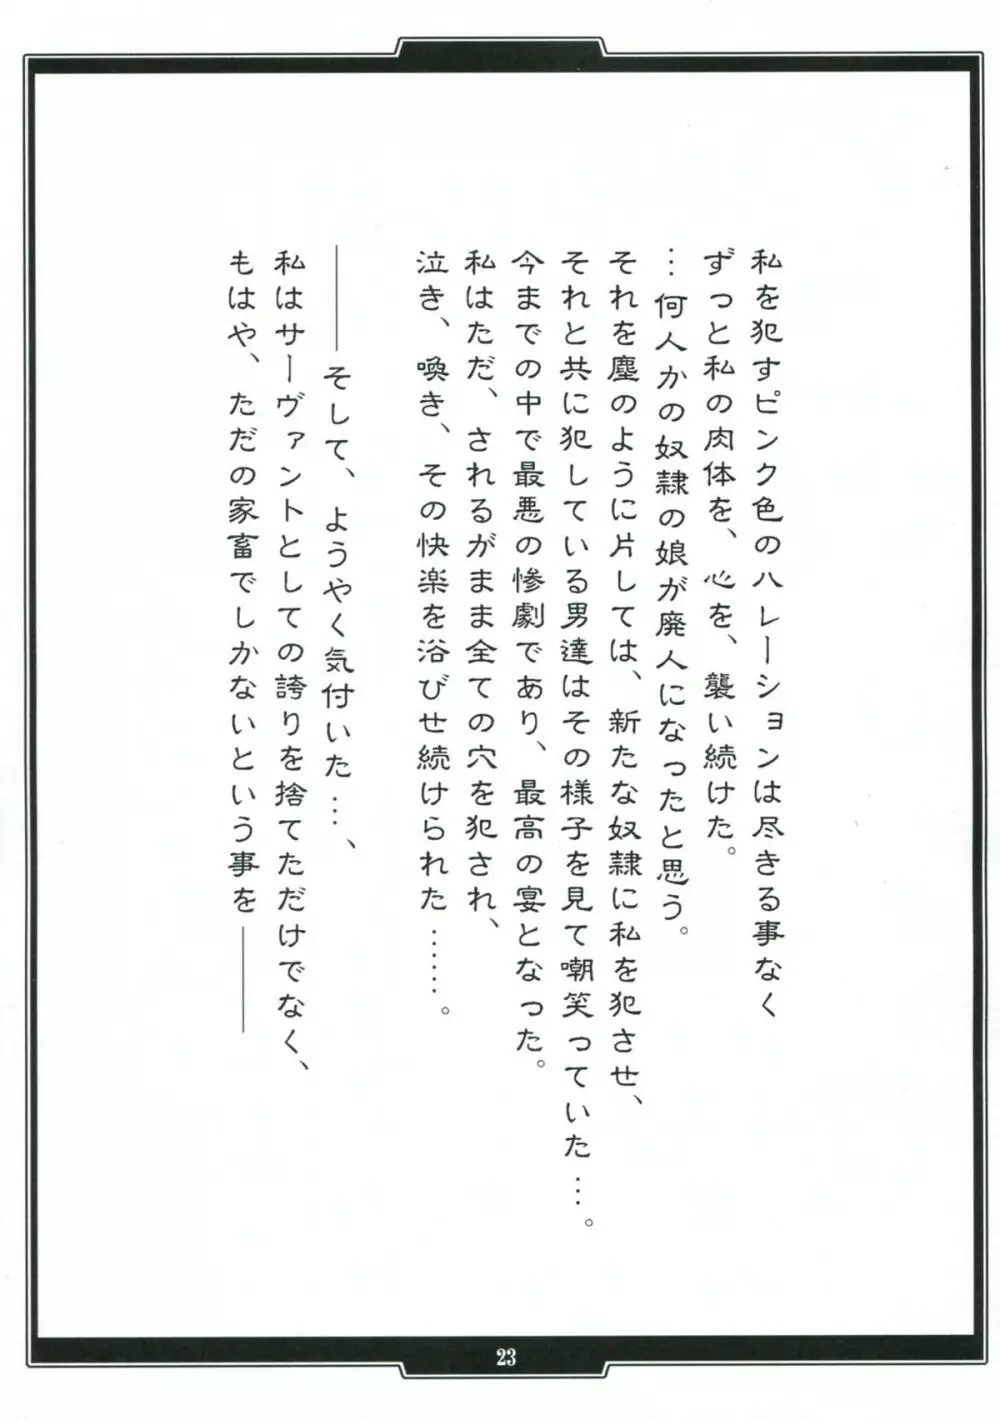 私を犯すピンク色のハレーションは尽きる事なく
ずっと私の肉体を、心を、襲い続けた。
…何人かの奴隷の娘が廃人になったと思う。
それを塵のように片しては、新たな奴隷に私を犯させ、
それと共に犯している男達はその様子を見て嘲笑っていた…。
今までの中で最悪の惨劇であり、最高の宴となった。
私はただ、されるがまま全ての穴を犯され、
泣き、喚き、その快楽を浴びせ続けられた……。
――そして、ようやく気付いた…、
私はサーヴァントとしての誇りを捨てただけでなく、
もはや、ただの家畜でしかないという事を――
23